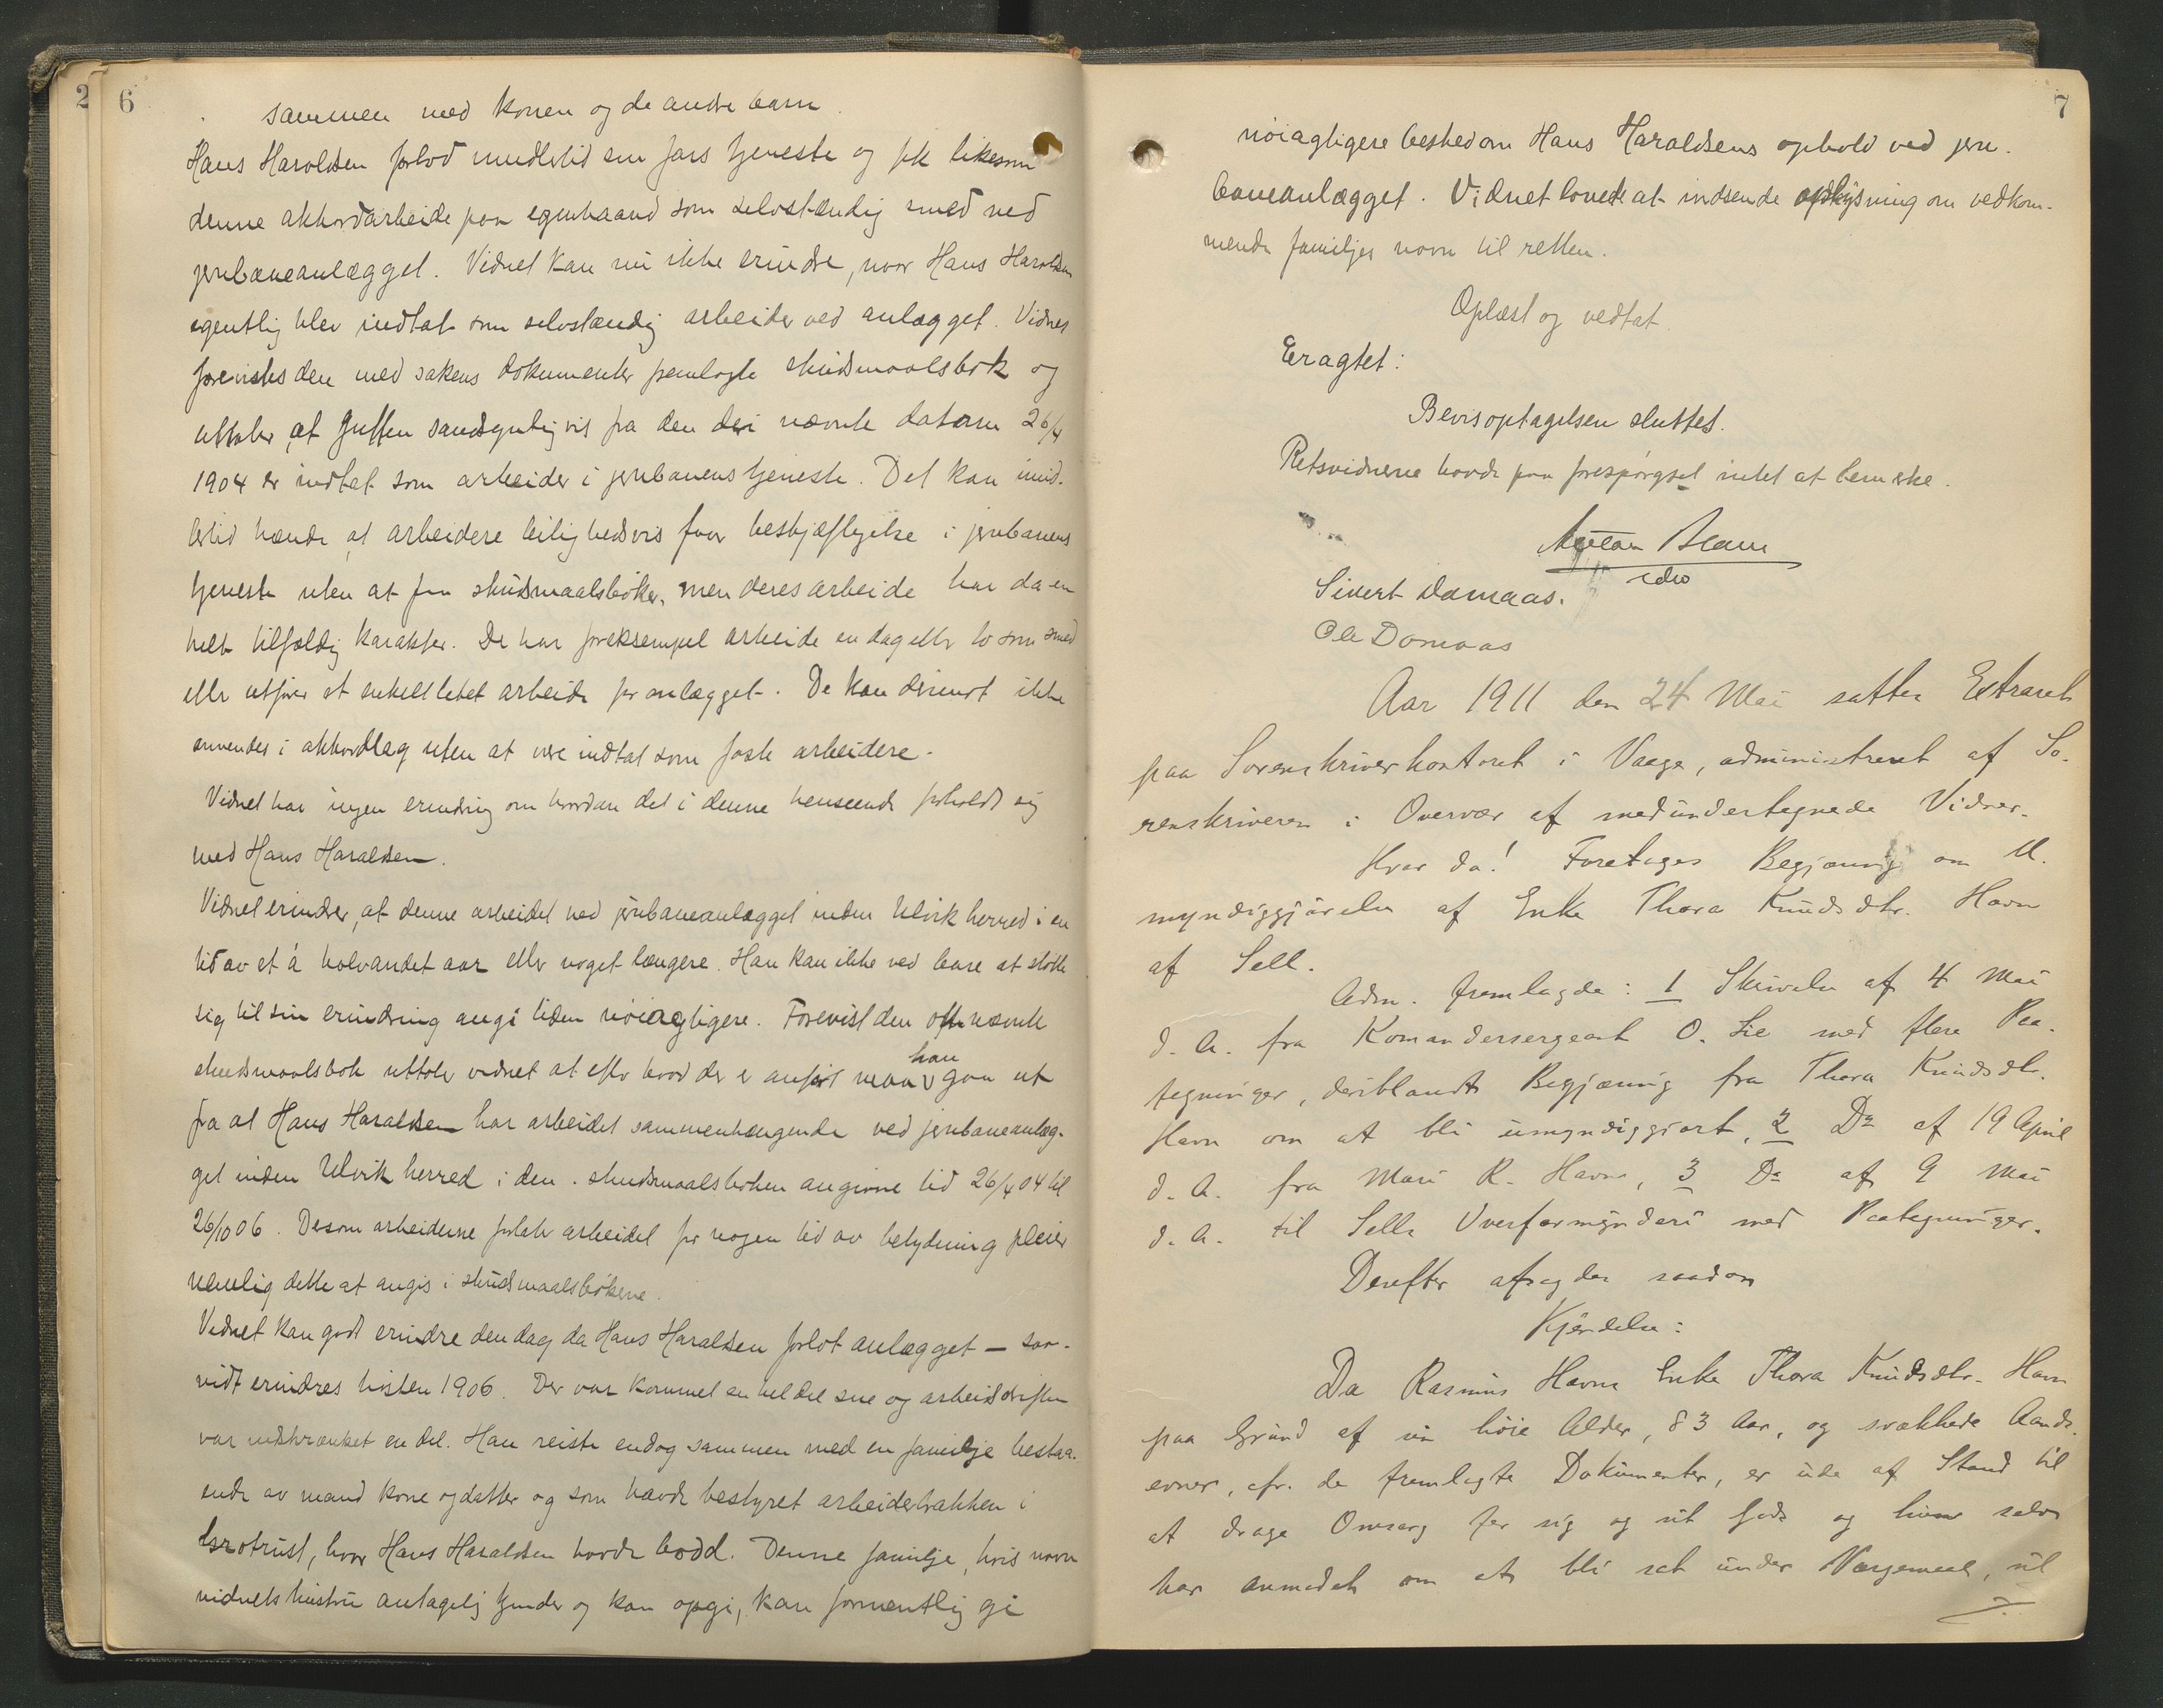 2 6
sammen med konen og de andre barn
Hans Haraldsen forlod imidlertid sin fars tjeneste og fik likesom
denne akkordarbeide paa egenhaand som selvstændig smed ved
jernbaneanlægget. Vidnet kan nu ikke erindre, naar Hans Haraldsen
egentlig blev indtat som selvstændig arbeider ved anlægget. Vidnet
forevistes den med sakens dokumenter fremlagte skudsmaalsbok og
uttaler, at gutten sandsynligvis fra den deri nævnte datum 26/4
1904 er indtat som arbeider i jernbanens tjeneste. Det kan imid-
lertid hænde at arbeidere leilighedsvis faar beskjæftigelse i jernbanens
tjeneste uten at faa skudsmaalsbøker, men deres arbeide har da en
helt tilfældig karakter. De har foreksempel arbeide en dag eller to som smed
eller utfører et enkelt letet arbeide for anlægget. De kan derimot ikke
anvendes i akkordlag uten at være indtat som faste arbeidere.
Vidnet har ingen erindring om hvordan det i denne henseende forholdt sig
med Hans Haraldsen.
Vidnet erindrer, at denne arbeidet ved jernbaneanlægget inden Ulvik herred i en
tid av et á halvandet aar eller noget længere. Han kan ikke ved bare at støtte
sig til sin erindring angi tiden nøiagtigere. Forevist den ofte nævnte
skudsmaalsbok uttaler vidnet at efter hvad der er anført maa han gaa ut
fra at Hans Haraldsen har arbeidet sammenhængende ved jernbaneanlæg-
get inden Ulvik herred i den i skudsmaalsboken angivne tid 26/4 04 til
26/10 06. Dersom arbeiderne forlater arbeidet for nogen tid av betydning pleier
nemlig dette at angis i skudsmaalsbøkene.
Vidnet kan godt erindre den dag da Hans Haraldsen forlot anlægget – saa-
vidt erindres høsten 1906. Der var kommet en hel del sne og arbeidsdriften
var indskrænket en del. Han reiste endog sammen med en familje bestaa-
ende av mand kone og datter og som havde bestyret arbeiderbrakken i
hvor Hans Haraldsen havde bodd. Denne familje, hvis navn
vidnets hustru antagelig kjender og kan opgi, kan formentlig gi
7
nøiagtigere besked om Hans Haraldsens ophold ved jern-
baneanlægget. Vidnet lovede at indsende oplysning om vedkom-
mende familjes navn til retten.
Oplæst og vedtat
Eragtet:
Bevisoptagelsen sluttet.
Retsvidnerne havde paa forespørgsel intet at bemerke.
Sivert Domaas.
Ole Domaas
Aar 1911 den 24 Mai sattes Extraret
paa Sorenskriverkontoret i Vaage, administreret af So-
renskriveren i Overvær af medundertegnede Vidner.
Hvor da! Foretages Begjæring om U-
myndiggjørelse af Enke Thora Knudsdtr. Havn
af Sell.
Adm. fremlagde: 1 Skrivelse af 4 Mai
d. A. fra Komandersergeant O. Lie med flere Paa-
tegninger, deriblandt Begjæring fra Thora Knudsdtr.
Havn om at bli umyndiggjort, 2 Do af 19 April
d. A. fra Mari R. Havn, 3 Do af 9 Mai
d. A. til Sells Overformynderi med Paategninger.
Derefter afsagdes saadan
Kjendelse:
Da Rasmus Havns Enke Thora Knudsdtr. Havn
paa Grund af sin høie Alder, 83 Aar, og svækkede Aands-
evner, cfr. de fremlagte Dokumenter, er ude af Stand til
at drage Omsorg for sig og sit Gods og hun selv
har anmodet om at bli sat under Værgemaal, vil